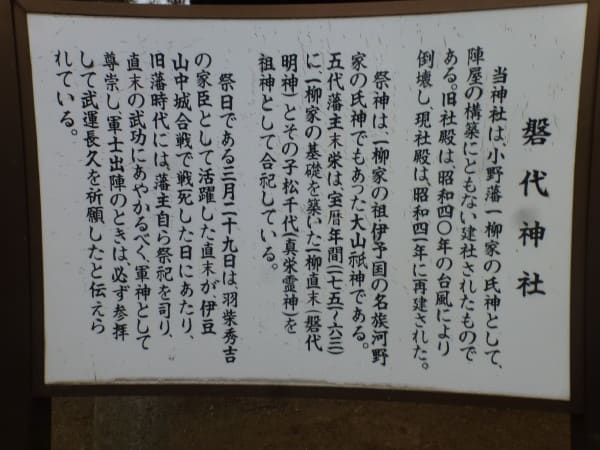 磐代神社
当神社は、小野藩一柳家の氏神として、
陣屋の構築にともない建社されたもので
ある。旧社殿は、昭和四〇年の台風により
倒壊し、現社殿は、昭和四一年に再建された。
祭神は一柳家の祖伊予国の名族河野
家の氏神でもあった大山祇神である。
五代藩主末栄は、宝暦年間(一七五一~六三)
に、一柳家の基礎を築いた一柳直末(磐代
明神)とその子松千代(真栄霊神)を
祖神として合祀している。
祭日である三月二十九日は、羽柴秀吉
の家臣として活躍した直末が、伊豆
山中城合戦で戦死した日にあたり、
旧藩時代には、藩主自ら祭祀を司り、
直末の武功にあやかるべく、軍神として
尊崇し、軍士出陣のときは、必ず参拝
して武運長久を祈願したと伝えら
れている。